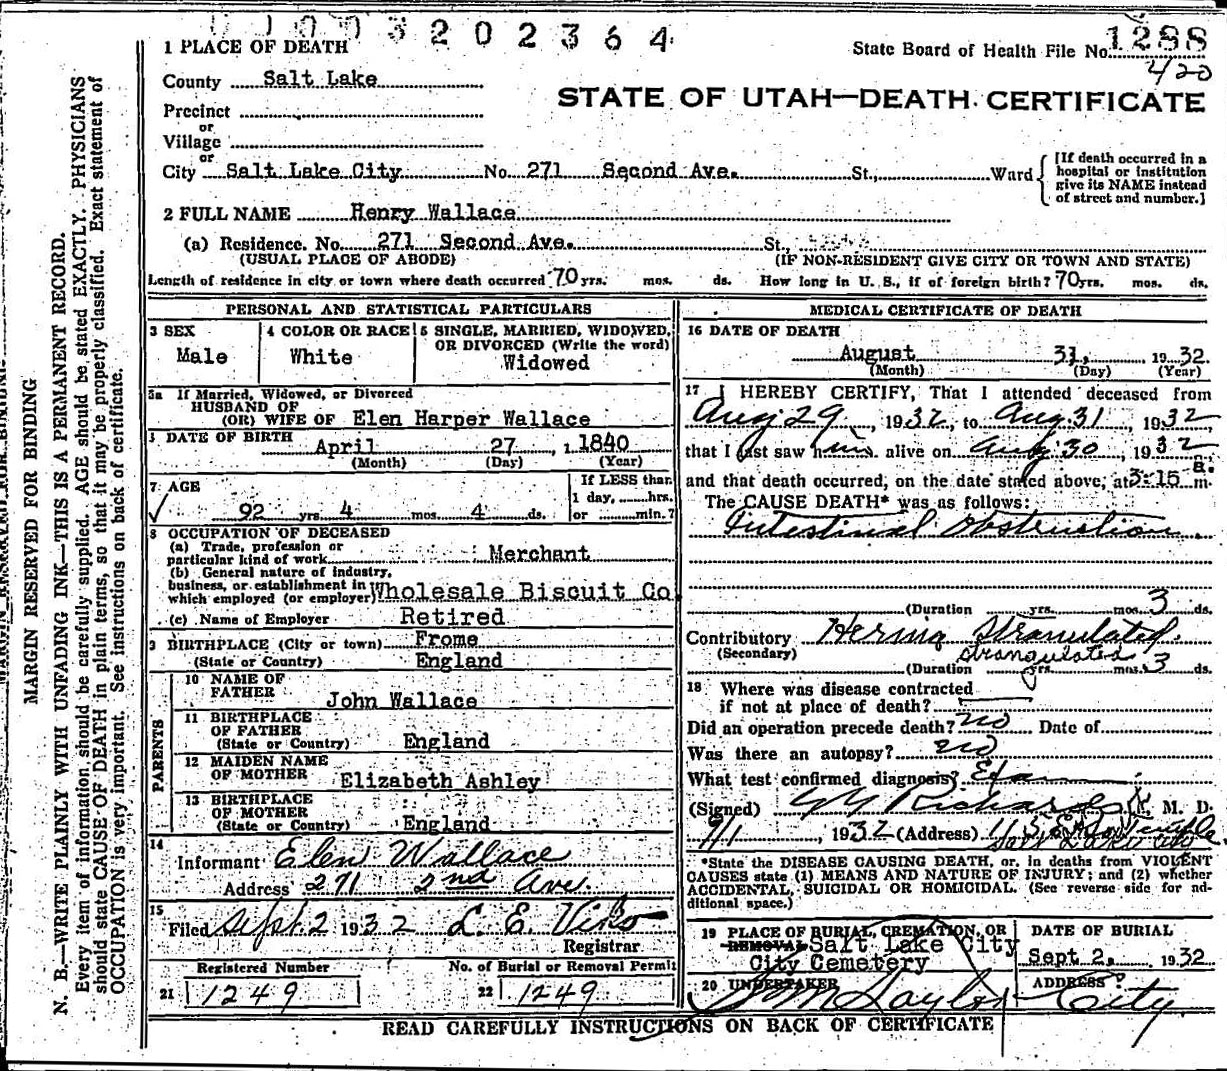 3202364
1 PLACE OF DEATH
State Board of Health File No. 1288
420
County Salt Lake
STATE OF UTAH—DEATH CERTIFICATE
Precinct
or
Village
or
City Salt Lake City No. 271 Second Ave. St., Ward
[If death occurred in a
hospital or institution
give its NAME instead
of street and number.]
2 FULL NAME Henry Wallace
(a) Residence. No. 271 Second Ave. St.,
(USUAL PLACE OF ABODE) (IF NON-RESIDENT GIVE CITY OR TOWN AND STATE)
Length of residence in city or town where death occurred 70 yrs. mos. ds. How long in U. S., if of foreign birth? 70 yrs. mos. ds.
PERSONAL AND STATISTICAL PARTICULARS
3 SEX
Male
4 COLOR OR RACE
White
5 SINGLE, MARRIED, WIDOWED,
OR DIVORCED (Write the word)
Widowed
5a If Married, Widowed, or Divorced
HUSBAND OF
(OR) WIFE OF Elen Harper Wallace
DATE OF BIRTH
April 27, 1840
(Month) (Day) (Year)
7 AGE
92 yrs. 4 mos. 4 ds.
If LESS than
1 day, hrs.
or min.?
8 OCCUPATION OF DECEASED
(a) Trade, profession or
particular kind of work Merchant
(b) General nature of industry,
business, or establishment in
which employed (or employer) Wholesale Biscuit Co
(c) Name of Employer Retired
9 BIRTHPLACE (City or town) Frome
(State or Country) England
PARENTS
10 NAME OF
FATHER
John Wallace
11 BIRTHPLACE
OF FATHER
(State or Country) England
12 MAIDEN NAME
OF MOTHER Elizabeth Ashley
13 BIRTHPLACE
OF MOTHER
(State or Country) England
14
Informant Elen Wallace
Address 271 2nd Ave.
15
Filed Sept. 2 1932 L. E. Viko
Registrar
Registered Number
21 1249
No. of Burial or Removal Permit
22 1249
MEDICAL CERTIFICATE OF DEATH
16 DATE OF DEATH
August 31, 1932.
(Month) (Day) (Year)
17 I HEREBY CERTIFY, That I attended deceased from
Aug 29, 1932, to Aug 31 1932,
that I last saw him alive on Aug 30, 1932
and that death occurred, on the date stated above, at 3:15 a. m.
The CAUSE DEATH* was as follows:
Intestinal Obstruction
(Duration yrs. mos. 3 ds.
Contributory Hernia Stranulated.
(Secondary) strangulated
(Duration yrs. mos. 3 ds.
18 Where was disease contracted
if not at place of death?
Did an operation precede death? no Date of
Was there an autopsy? no
What test confirmed diagnosis?
(Signed) Richards M. D.
9/1, 1932 (Address)
Salt Lake City
*State the DISEASE CAUSING DEATH, or, in deaths from VIOLENT
CAUSES state (1) MEANS AND NATURE OF INJURY; and (2) whether
ACCIDENTAL, SUICIDAL OR HOMICIDAL. (See reverse side for ad-
ditional space.)
19 PLACE OF BURIAL, CREMATION, OR
REMOVAL Salt Lake City
City Cemetery
DATE OF BURIAL
Sept 2, 1932
20 UNDERTAKER
S. M. Taylor
ADDRESS
City
READ CAREFULLY INSTRUCTIONS ON BACK OF CERTIFICATE
MARGIN RESERVED FOR BINDING
N. B.—WRITE PLAINLY WITH UNFADING INK—THIS IS A PERMANENT RECORD.
Every item of information should be carefully supplied. AGE should be stated EXACTLY. PHYSICIANS
should state CAUSE OF DEATH in plain terms, so that it may be properly classified. Exact statement of
OCCUPATION is very important. See instructions on back of certificate.